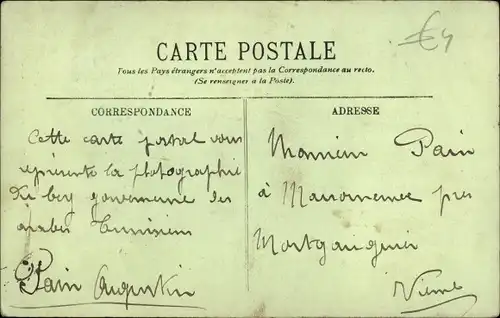 CARTE POSTALE
Tous les Pays étrangers n'acceptent pas la Correspondance au recto.
(Se renseigner à la Poste).
CORRESPONDANCE
Cette carte postal vous
représente la photographie
du bey gouverneur des
arabes Tunisiens
Pain Augustin
ADRESSE
Monsieur Pain
à près
Vienne